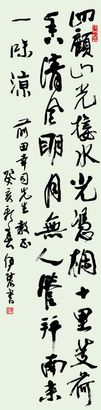 四顧山光接水光憑欄十里芰荷
香清風明月無人管并南來
一味涼
前田幸司先生教正
癸亥新春